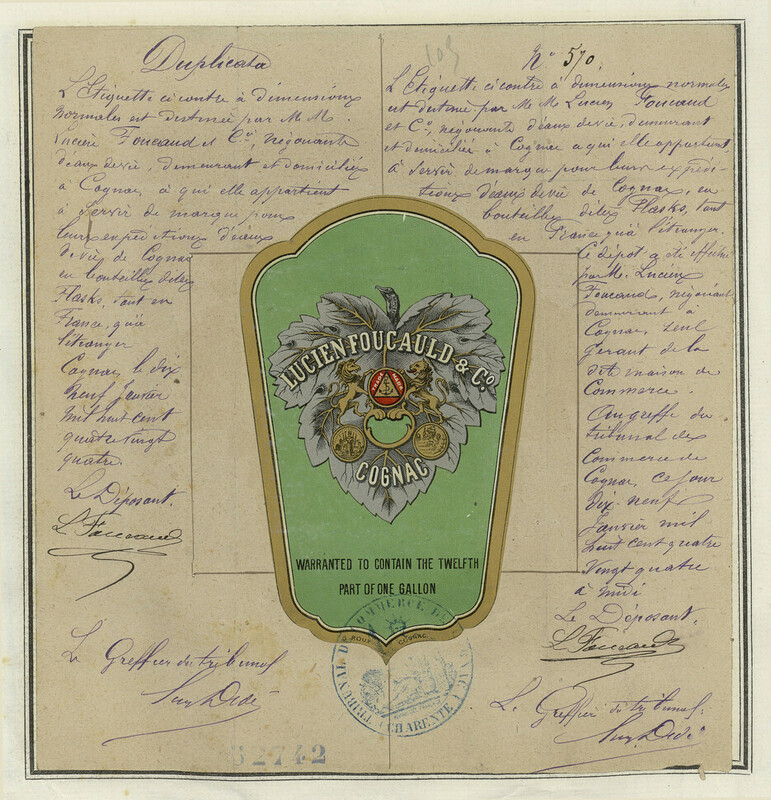 Duplicata
L'Etiquette ci contre à dimensions
normales est destinée par M.M.
Lucien Foucaud et Cie, négociants
d'eaux de vie, demeurant et domiciliés
à Cognac, à qui elle appartient
à servir de marque pour
leurs expéditions d'eaux
de vie de Cognac
en bouteilles dites
Flasks, tant en
France, qu'à
l'étranger
Cognac, le dix
neuf Janvier
mil huit cent
quatre vingt
quatre.
Le Déposant.
L. Foucaud
Le Greffier du tribunal
109
No 570.
L'Etiquette ci contre à dimensions normales
est destinée par M.M. Lucien Foucaud
et Cie, négociants d'eaux de vie, demeurant
et domiciliés à Cognac a qui elle appartient
à servir de marque pour leurs expédi-
tions d'eaux de vie de Cognac, en
bouteilles dites Flasks, tant
en France qu'à l'étranger.
Ce dépôt a été effectué
par M. Lucien
Foucaud, négociant
demeurant à
Cognac, seul
gérant de la
dite maison de
Commerce.
Au greffe du
tribunal de
Commerce de
Cognac, ce jour
dix-neuf
Janvier mil
huit cent quatre
vingt quatre
à midi
Le Déposant.
L. Foucaud
Le Greffier du tribunal.
LUCIEN FOUCAULD & Co
TRADE MARK
COGNAC
WARRANTED TO CONTAIN THE TWELFTH
PART OF ONE GALLON
COGNAC
TRIBUNAL DE COMMERCE DE COGNAC
(CHARENTE)
52742